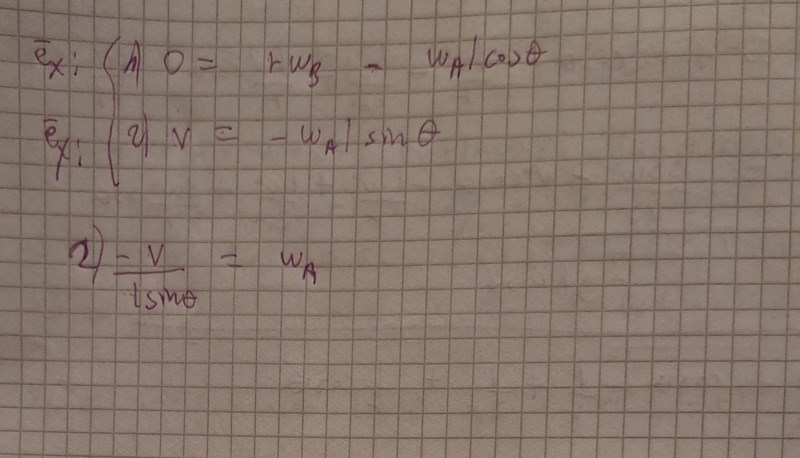 ēx: { 1) 0 = rω_B - ω_A l cosθ
ēy: { 2) v = -ω_A l sinθ
2) -v / (l sinθ) = ω_A